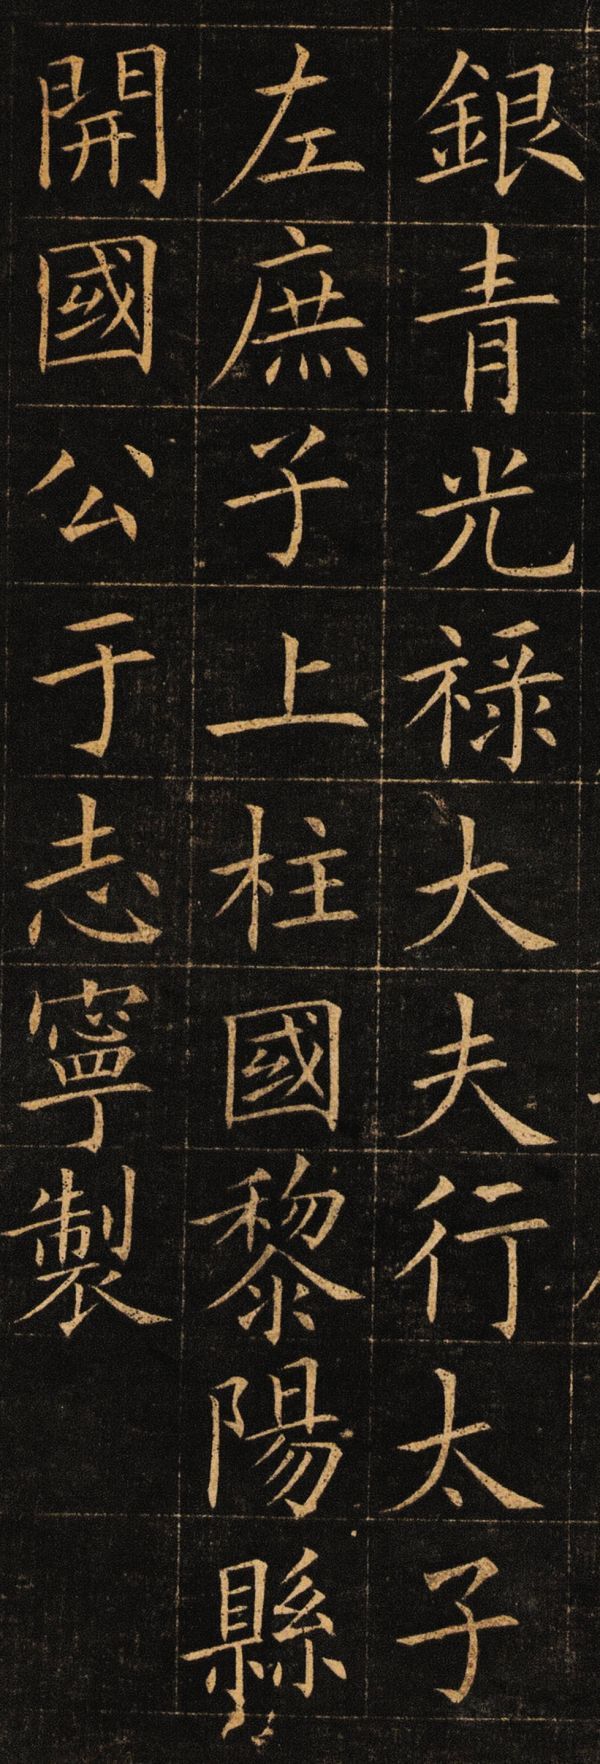 銀青光祿大夫行太子
左庶子上柱國黎陽縣
開國公于志寧製